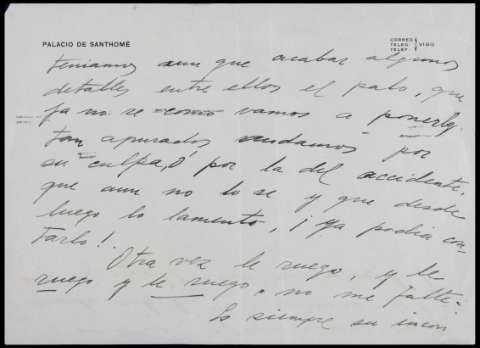 PALACIO DE SANTHOMÉ
CORREO
TELEG. VIGO
TELEF.
teniamos aun que acabar algunos
detalles entre ellos el palo, que
ya no se como vamos a ponerlo.
tan apurados andamos por
su culpa, ó por la del accidente,
que aun no lo se y que desde
luego lo lamento, ¡ya podia con-
tarlo!
Otra vez le ruego, y le
ruego y le ruego, no me falte.
Es siempre su